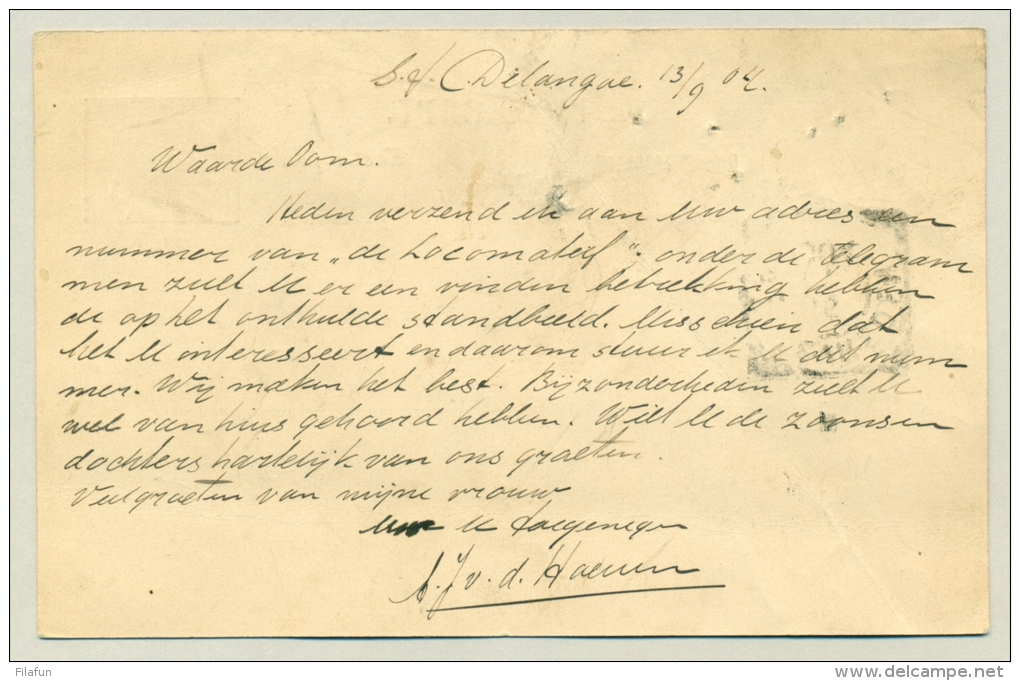 S.f. Delangoe. 13/9 04.
Waarde Oom.
Heden verzend ik aan Uw adres een
nummer van „de Locomotief". onder de telegram
men zult U er een vinden betrekking hebben
de op het onthulde standbeeld. Misschien dat
het U interesseert en daarom stuur ik U dit num
mer. Wij maken het best. Bijzonderheden zult U
wel van huis gehoord hebben. Wilt U de zoons en
dochters hartelijk van ons groeten.
Veel groeten van mijne vrouw
U toegenegen
v. d.
Filafun
www.delcampe.net